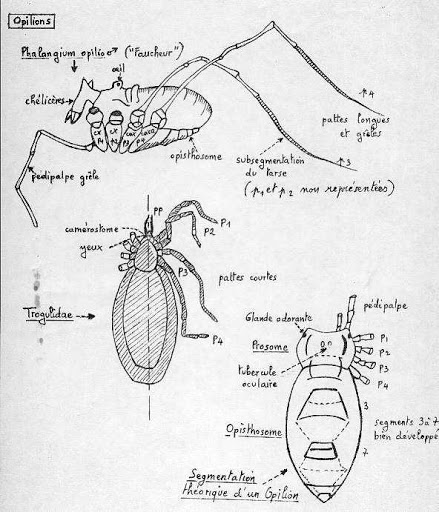 Opilions
Phalangium opilio ♂ ("Faucheur")
œil
chélicères
cx P1
cx P2
cox P3
coxa P4
opisthosome
pédipalpe grêle
4
pattes longues
et grêles
subsegmentation
du tarse
3
(p1 et p2 non représentées)
PP
camérostome
yeux
P1
P2
P3
pattes courtes
P4
Trogulidae
pédipalpe
Glande odorante
Prosome
P1
P2
P3
P4
tubercule
oculaire
3
segments 3 à 7
bien développés
Opisthosome
7
Segmentation
théorique d'un Opilion